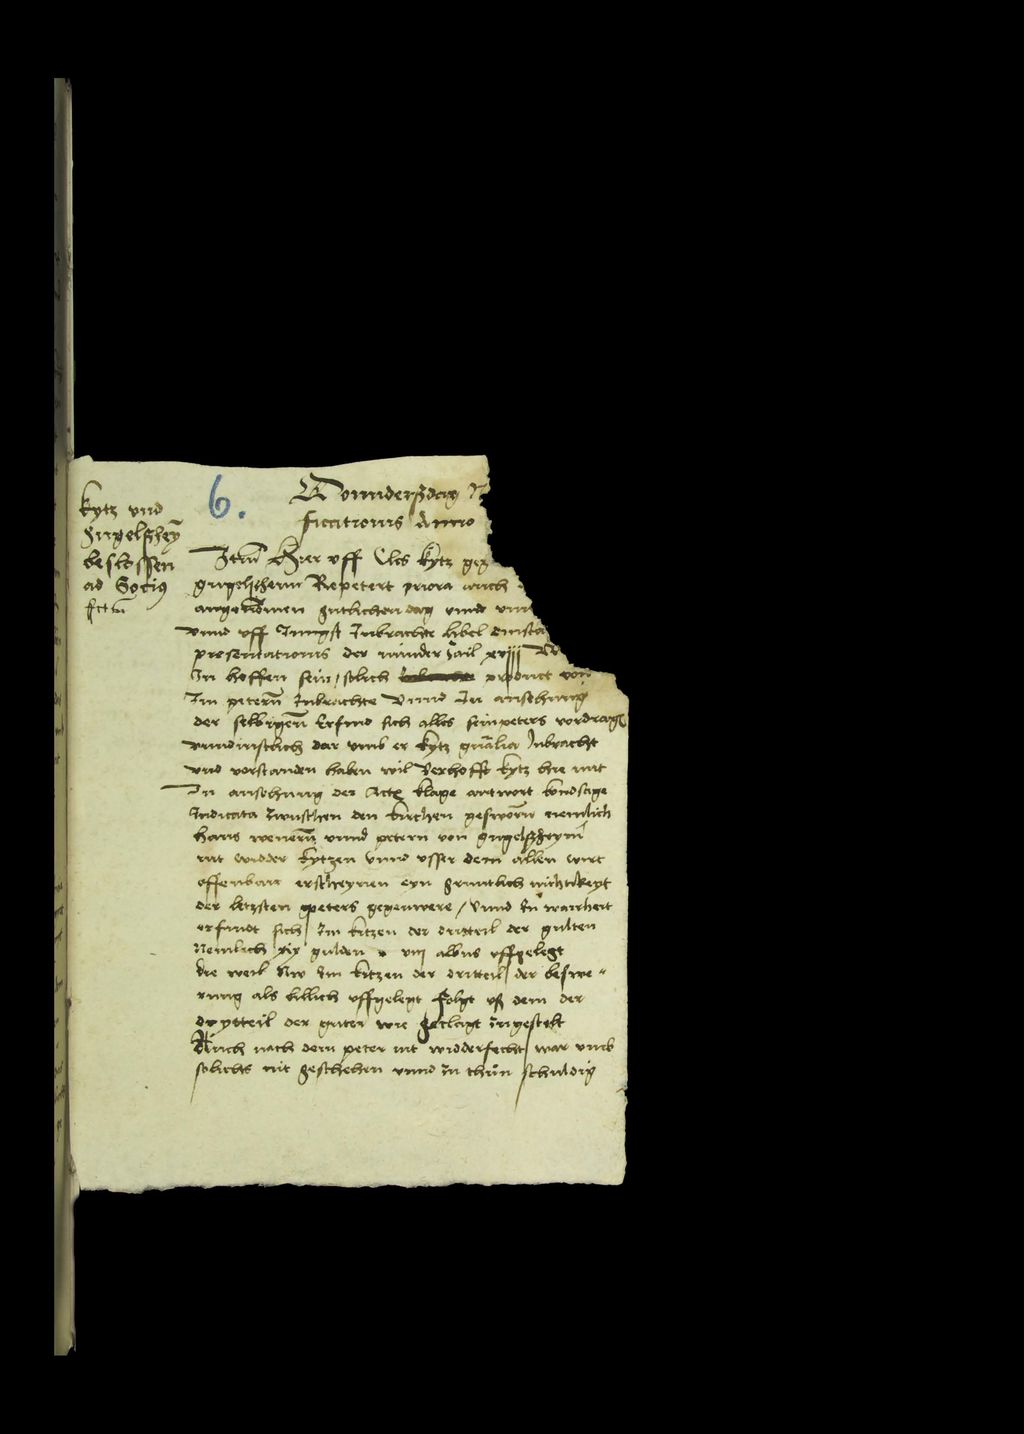 kytz vnd
Ingelszheym
beslossen
ad Socios
6.
Donnderßdag
ficationis Anno
Item Hier vff Als kytz
Repetert priora auch
angenomen gutlichen dag vnnd
vnnd vff Jungst Inbrachte libel
presentationis der minder zail xviij
In hoffen sein, solich product von
Im petern Inbrachte Vnnd In ansehung
der selbigen Erfind sich alles sein peters vordrage
vnndinstlich dar vmb er kytz gnalia Inbracht
vnd vorstanden haben wil Verhofft kytz hie mit
In ansehung der Acta klage antwort kondsage
Indicata zwuschen den kirchen gesworn nemlich
hans wenern vnnd petern von Ingelszheym
mit widder kytzen Vnnd vsser dem allen wirt
offenbarr erscheynen eyn gruntlich nichtikeyt
der letzsten peters gegenwere, Vnnd In warheit
erfindt sich Im kitzen der dritteil der gulten
Nemlich xix gulden viij albus vffgelegt
die weil Nw Im kitzen der dritteil der beswe-
rung als billich vffgelegt Folgt vß dem der
drytteil der guter wie geclagt zugestelt
Auch nach dem peter nit widderfecht war vmb
solichs nit geschehen vnnd zu thun schuldig